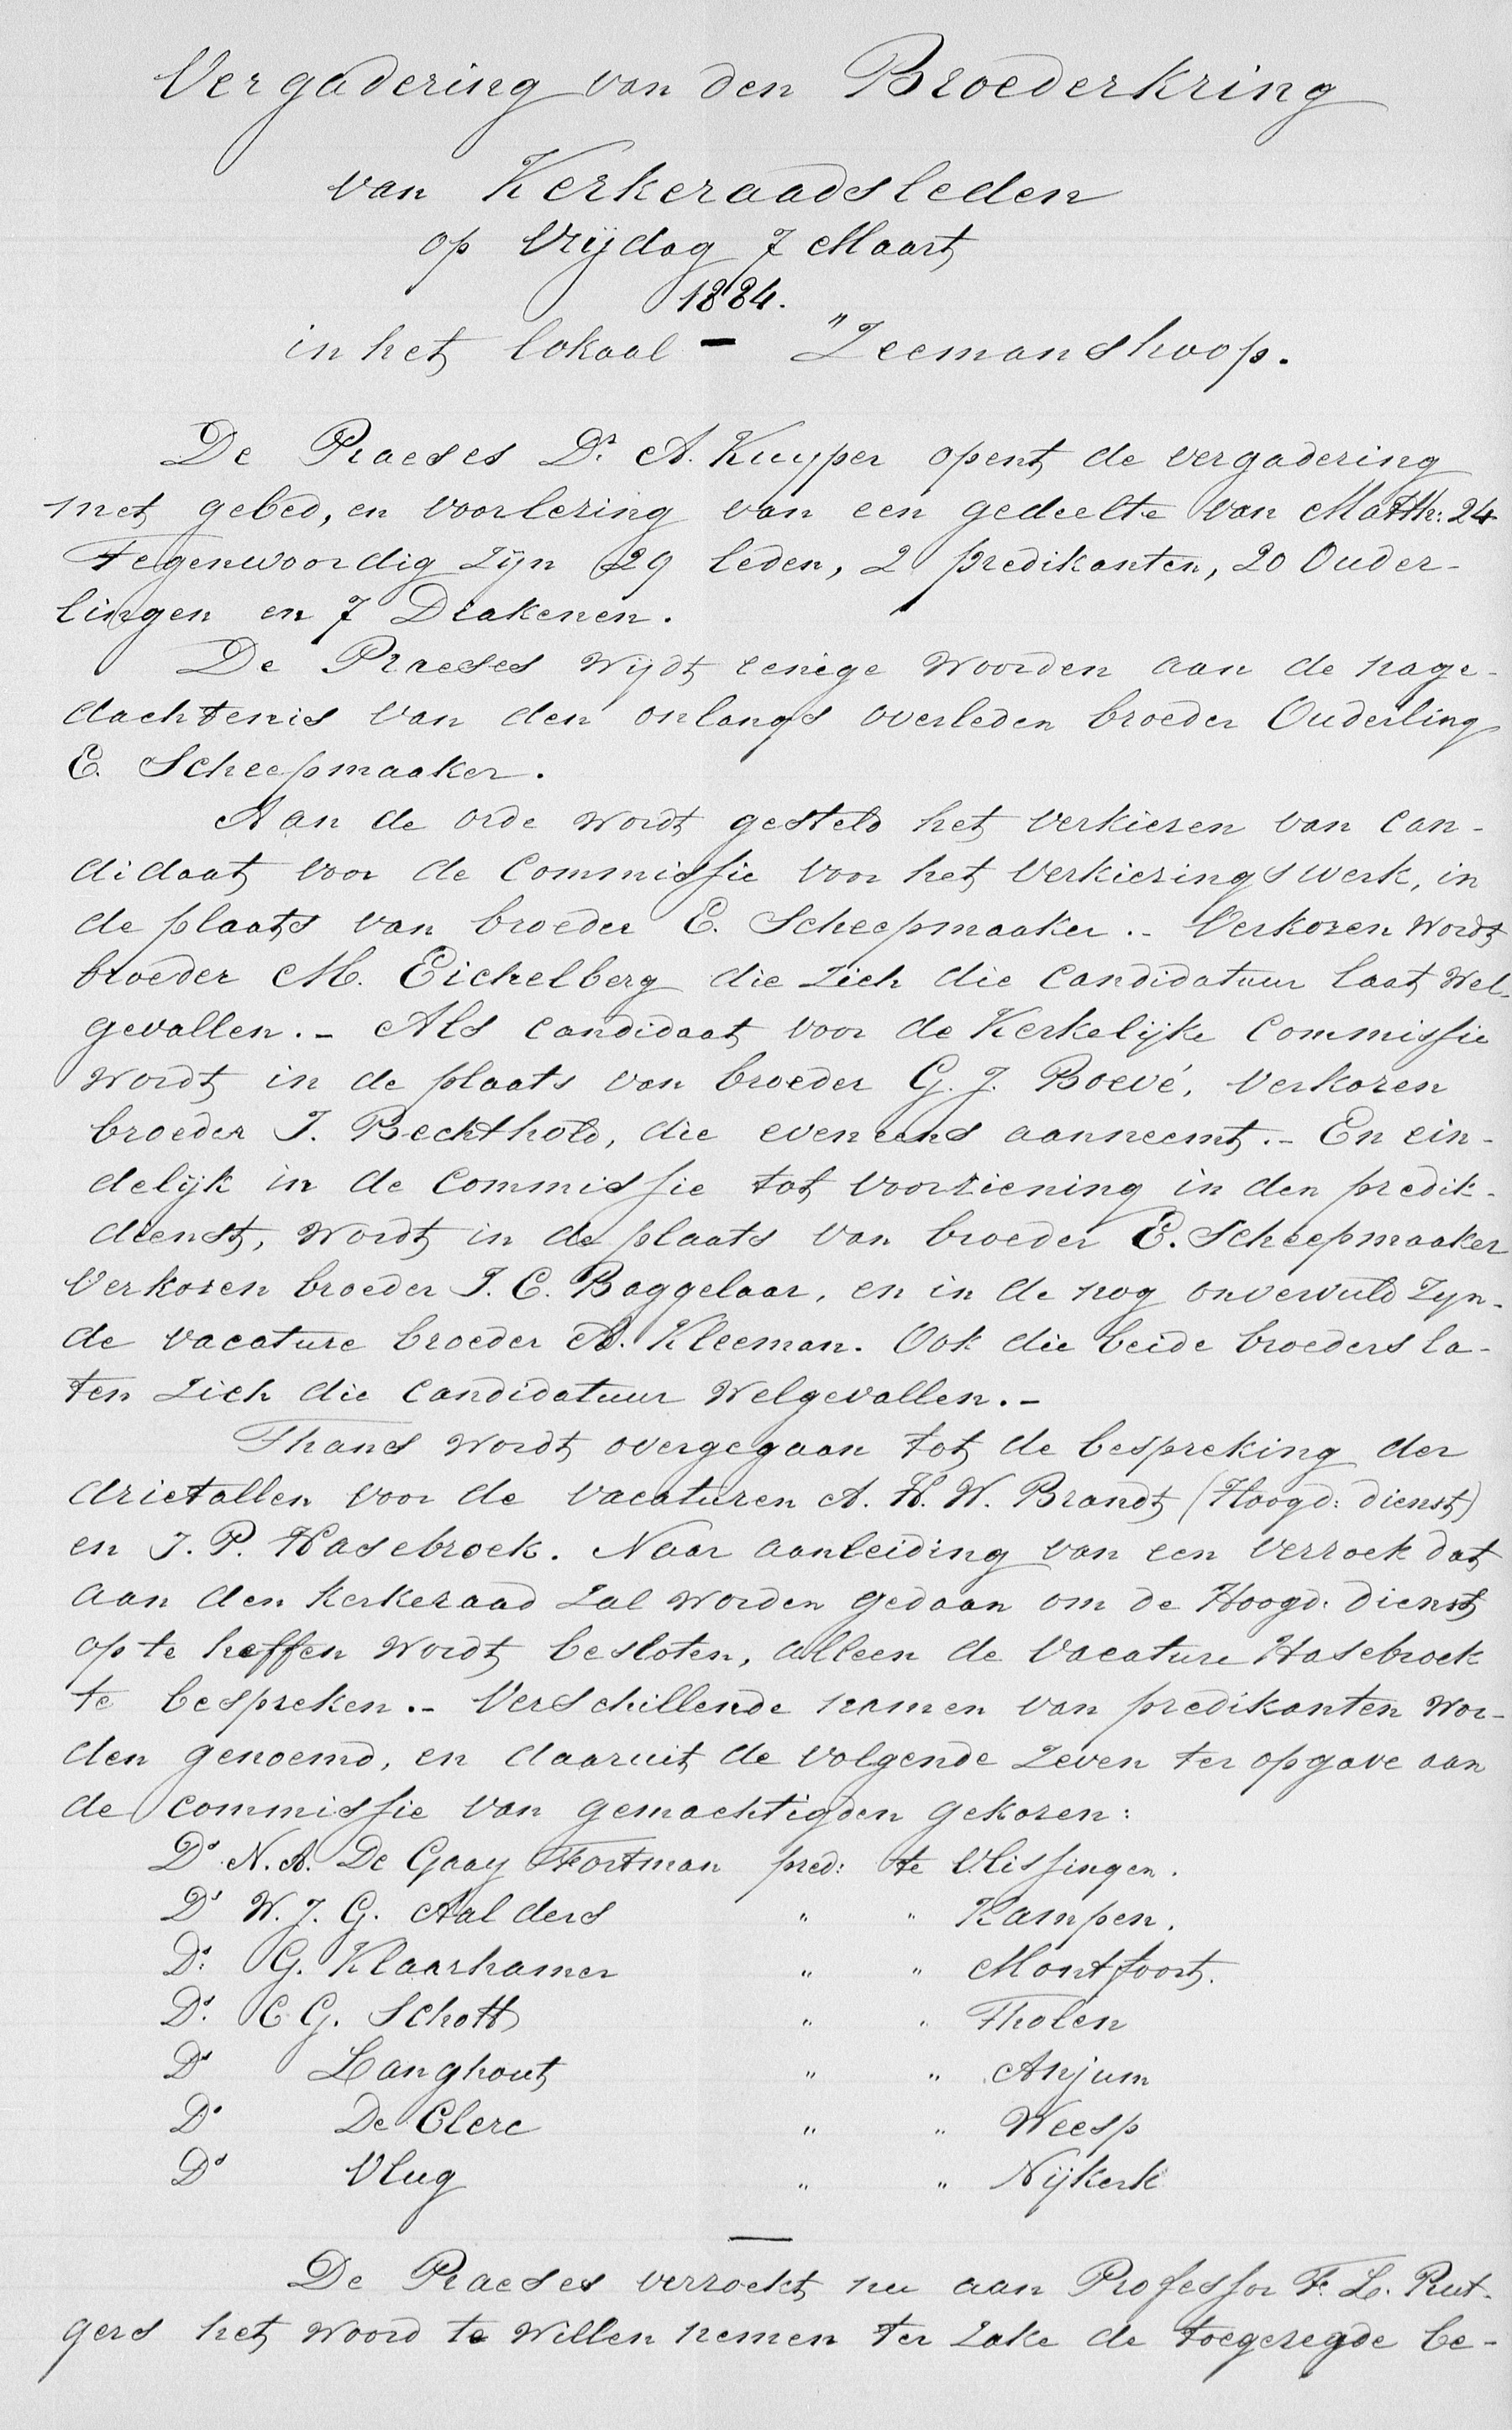 Vergadering van den Broederkring
van Kerkeraadsleden
op Vrijdag 7 Maart
1884.
in het lokaal - "Zeemanshoop.
De Praeses Dr. A. Kuyper opent de vergadering
met gebed, en voorlezing van een gedeelte van Matth: 24
Tegenwoordig zijn 29 leden, 2 predikanten, 20 Ouder-
lingen en 7 Diakenen.
De Praeses wijdt eenige woorden aan de nage-
dachtenis van den onlangs overleden broeder Ouderling
E. Scheepmaaker.
Aan de orde wordt gesteld het verkiezen van can-
didaat voor de Commissie voor het Verkiezingswerk, in
de plaats van broeder E. Scheepmaaker.- Verkozen wordt
broeder M. Eichelberg die zich die Candidatuur laat wel-
gevallen.- Als Candidaat voor de Kerkelijke Commissie
wordt in de plaats van broeder G. J. Boevé, verkozen
broeder J. Bechthold, die eveneens aanneemt.- En ein-
delijk in de Commissie tot voorziening in den predik-
dienst, wordt in de plaats van broeder E. Scheepmaaker
verkozen broeder J. C. Baggelaar, en in de nog onvervuld zijn-
de vacature broeder A. Kleeman. Ook die beide broeders la-
ten zich die Candidatuur welgevallen.-
Thans wordt overgegaan tot de bespreking der
drietallen voor de vacaturen A. H. W. Brandt (Hoogd: dienst)
en J. P. Hasebroek. Naar aanleiding van een verzoek dat
aan den kerkeraad zal worden gedaan om de Hoogd: dienst
op te heffen wordt besloten, alleen de vacature Hasebroek
te bespreken.- Verschillende namen van predikanten wor-
den genoemd, en daaruit de volgende zeven ter opgave aan
de commissie van gemachtigden gekozen:
Ds. N. A. De Gaay Fortman pred: te Vlissingen.
Ds W. J. G. Aalders " " Kampen.
Ds. G. Klaarhamer " " Montfoort.
Ds. C. G. Schott " " Tholen
Ds Langhout " " Anjum
Ds De Clerc " " Weesp
Ds Vlug " " Nijkerk
De Praeses verzoekt nu aan Professor F. L. Rut-
gers het woord te willen nemen ter zake de toegezegde be-